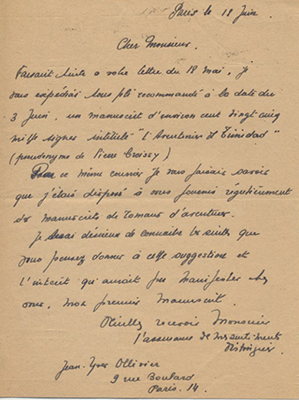 Paris le 18 Juin
Cher Monsieur.
Faisant suite a votre lettre du 18 mai, je
vous expédiais sous pli recommandé à la date du
3 Juin un manuscrit d'environ cent vingt cinq
mille signes intitulé "l'Aventurier de Trinidad"
(pseudonyme de Pierre Croissy)
Par ce même courrier je vous faisais savoir
que j'étais disposé à vous fournir régulièrement
des manuscrits de romans d'aventures.
Je serai désireux de connaitre la suite que
vous pensez donner à cette suggestion et
l'intérêt qu'aurait pu manifester chez
vous, mon premier manuscrit.
Veuillez recevoir Monsieur
l'assurance de mes sentiments
distingués
Jean-Yves Ollivier
9 rue Boulard
Paris. 14.